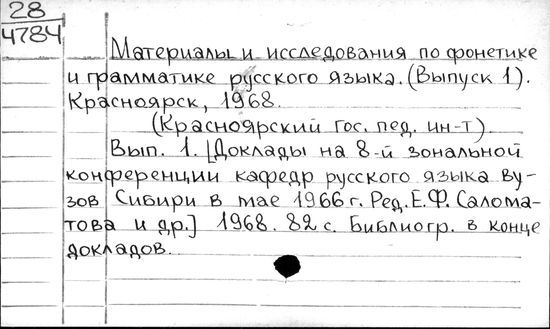 28
4784
Материалы и исследования по фонетике
и грамматике русского языка. (Выпуск 1).
Красноярск, 1968.
(Красноярский гос. пед. ин-т).
Вып. 1. [Доклады на 8-й зональной
конференции кафедр русского языка ву-
зов Сибири в мае 1966 г. Ред. Е.Ф. Салома-
това и др.] 1968. 82 с. Библиогр. в конце
докладов.